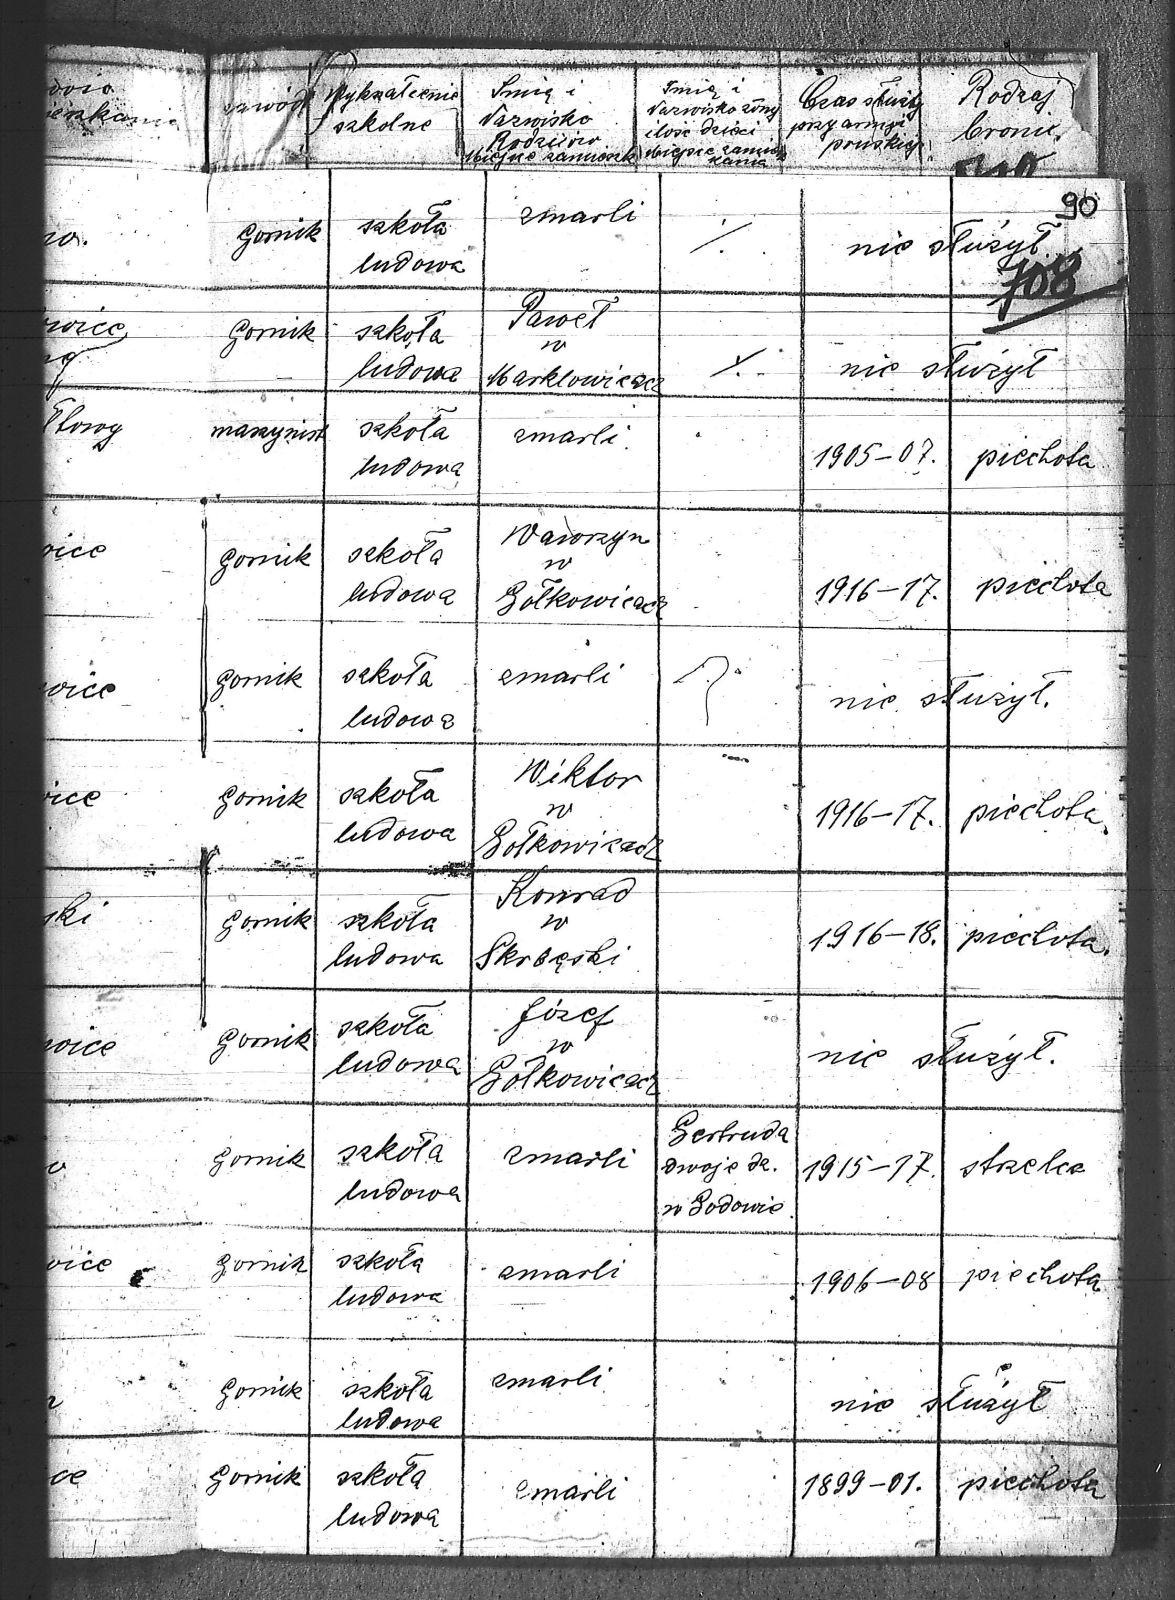 zawód
Wykształcenie
szkolne
Imię i
Nazwisko
Rodziców
Miejsce zamieszk
Imię i
Nazwisko żony
ilość dzieci
Miejsce zamiesz
kania
Czas służby
przy armji
pruskiej
Rodzaj
broni.
90
708
Gornik szkoła zmarli nie służył
ludowa
wice Gornik szkoła Paweł
w
ludowa Marklowicach nie służył
maszynist szkoła zmarli
ludowa 1905-07. piechota
wice Gornik szkoła Wawrzyn
w
ludowa Gołkowicach 1916-17. piechota
wice Gornik szkoła zmarli nie służył.
ludowa
wice Gornik szkoła Wiktor
w
ludowa Gołkowicach 1916-17. piechota.
ski Gornik szkoła Konrad
w
ludowa Skrbęski 1916-18. piechota.
wice Gornik szkoła Józef
w
ludowa Gołkowicach nie służył.
Gornik szkoła zmarli Gertruda
dwoje dz. 1915-17. strzelce
ludowa w Godowie
wice Gornik szkoła zmarli
ludowa 1906-08 piechota
Gornik szkoła zmarli nie służył
ludowa
ce Gornik szkoła zmarli 1899-01. piechota
ludowa